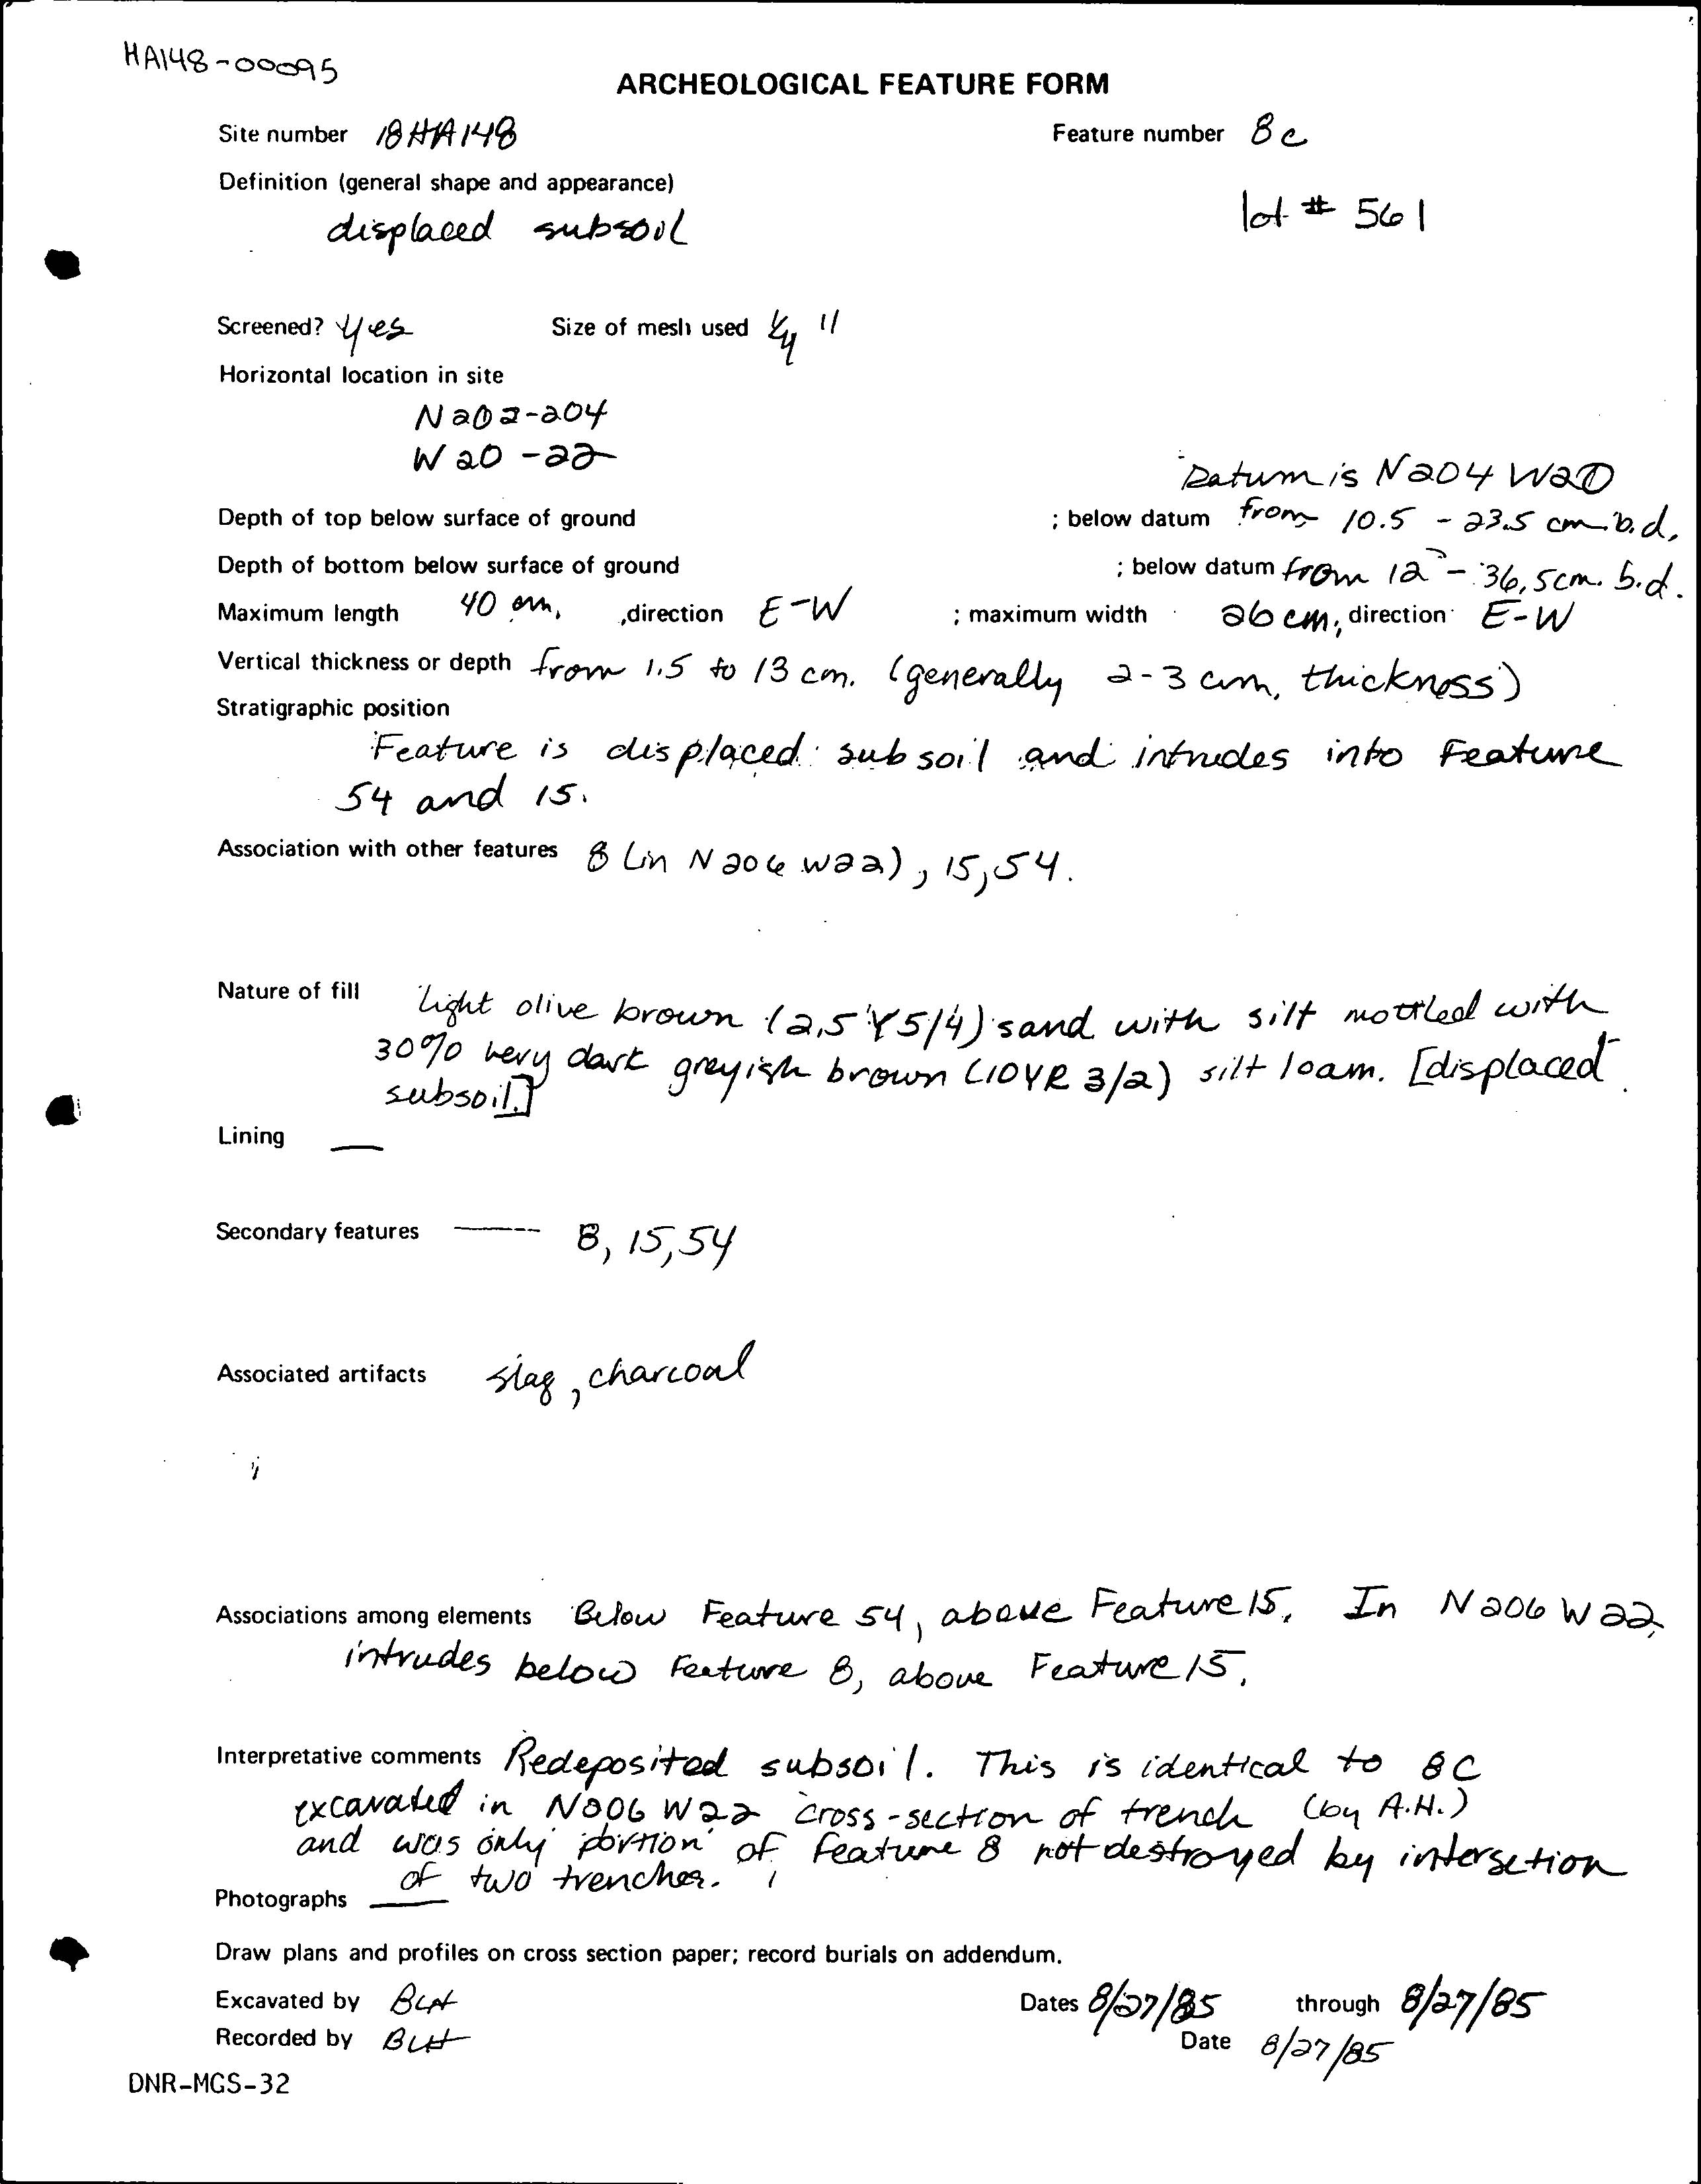 HA148-00095
ARCHEOLOGICAL FEATURE FORM
Site number 18HA148 Feature number 8c
Definition (general shape and appearance)
displaced subsoil lot # 561
Screened? Yes Size of mesh used 1/4 "
Horizontal location in site
N202-204
W20-22
Datum is N204 W20
Depth of top below surface of ground ; below datum from 10.5 - 23.5 cm. b.d.
Depth of bottom below surface of ground ; below datum from 12 - 36.5 cm. b.d.
Maximum length 40 cm. ,direction E-W ; maximum width 26 cm, direction E-W
Vertical thickness or depth from 1.5 to 13 cm. (generally 2-3 cm. thickness)
Stratigraphic position
Feature is displaced subsoil and intrudes into Feature
54 and 15.
Association with other features 8 (in N206 W22), 15, 54.
Nature of fill light olive brown (2.5Y 5/4) sand with silt mottled with
30% very dark greyish brown (10YR 3/2) silt loam. [displaced
subsoil.]
Lining —
Secondary features — 8, 15, 54
Associated artifacts slag, charcoal
Associations among elements Below Feature 54, above Feature 15. In N206 W22,
intrudes below Feature 8, above Feature 15.
Interpretative comments Redeposited subsoil. This is identical to 8C
excavated in N206 W22 cross-section of trench (by A.H.)
and was only portion of feature 8 not destroyed by intersetion
of two trenches.
Photographs —
Draw plans and profiles on cross section paper; record burials on addendum.
Excavated by BLH Dates 8/27/85 through 8/27/85
Recorded by BLH Date 8/27/85
DNR-MGS-32